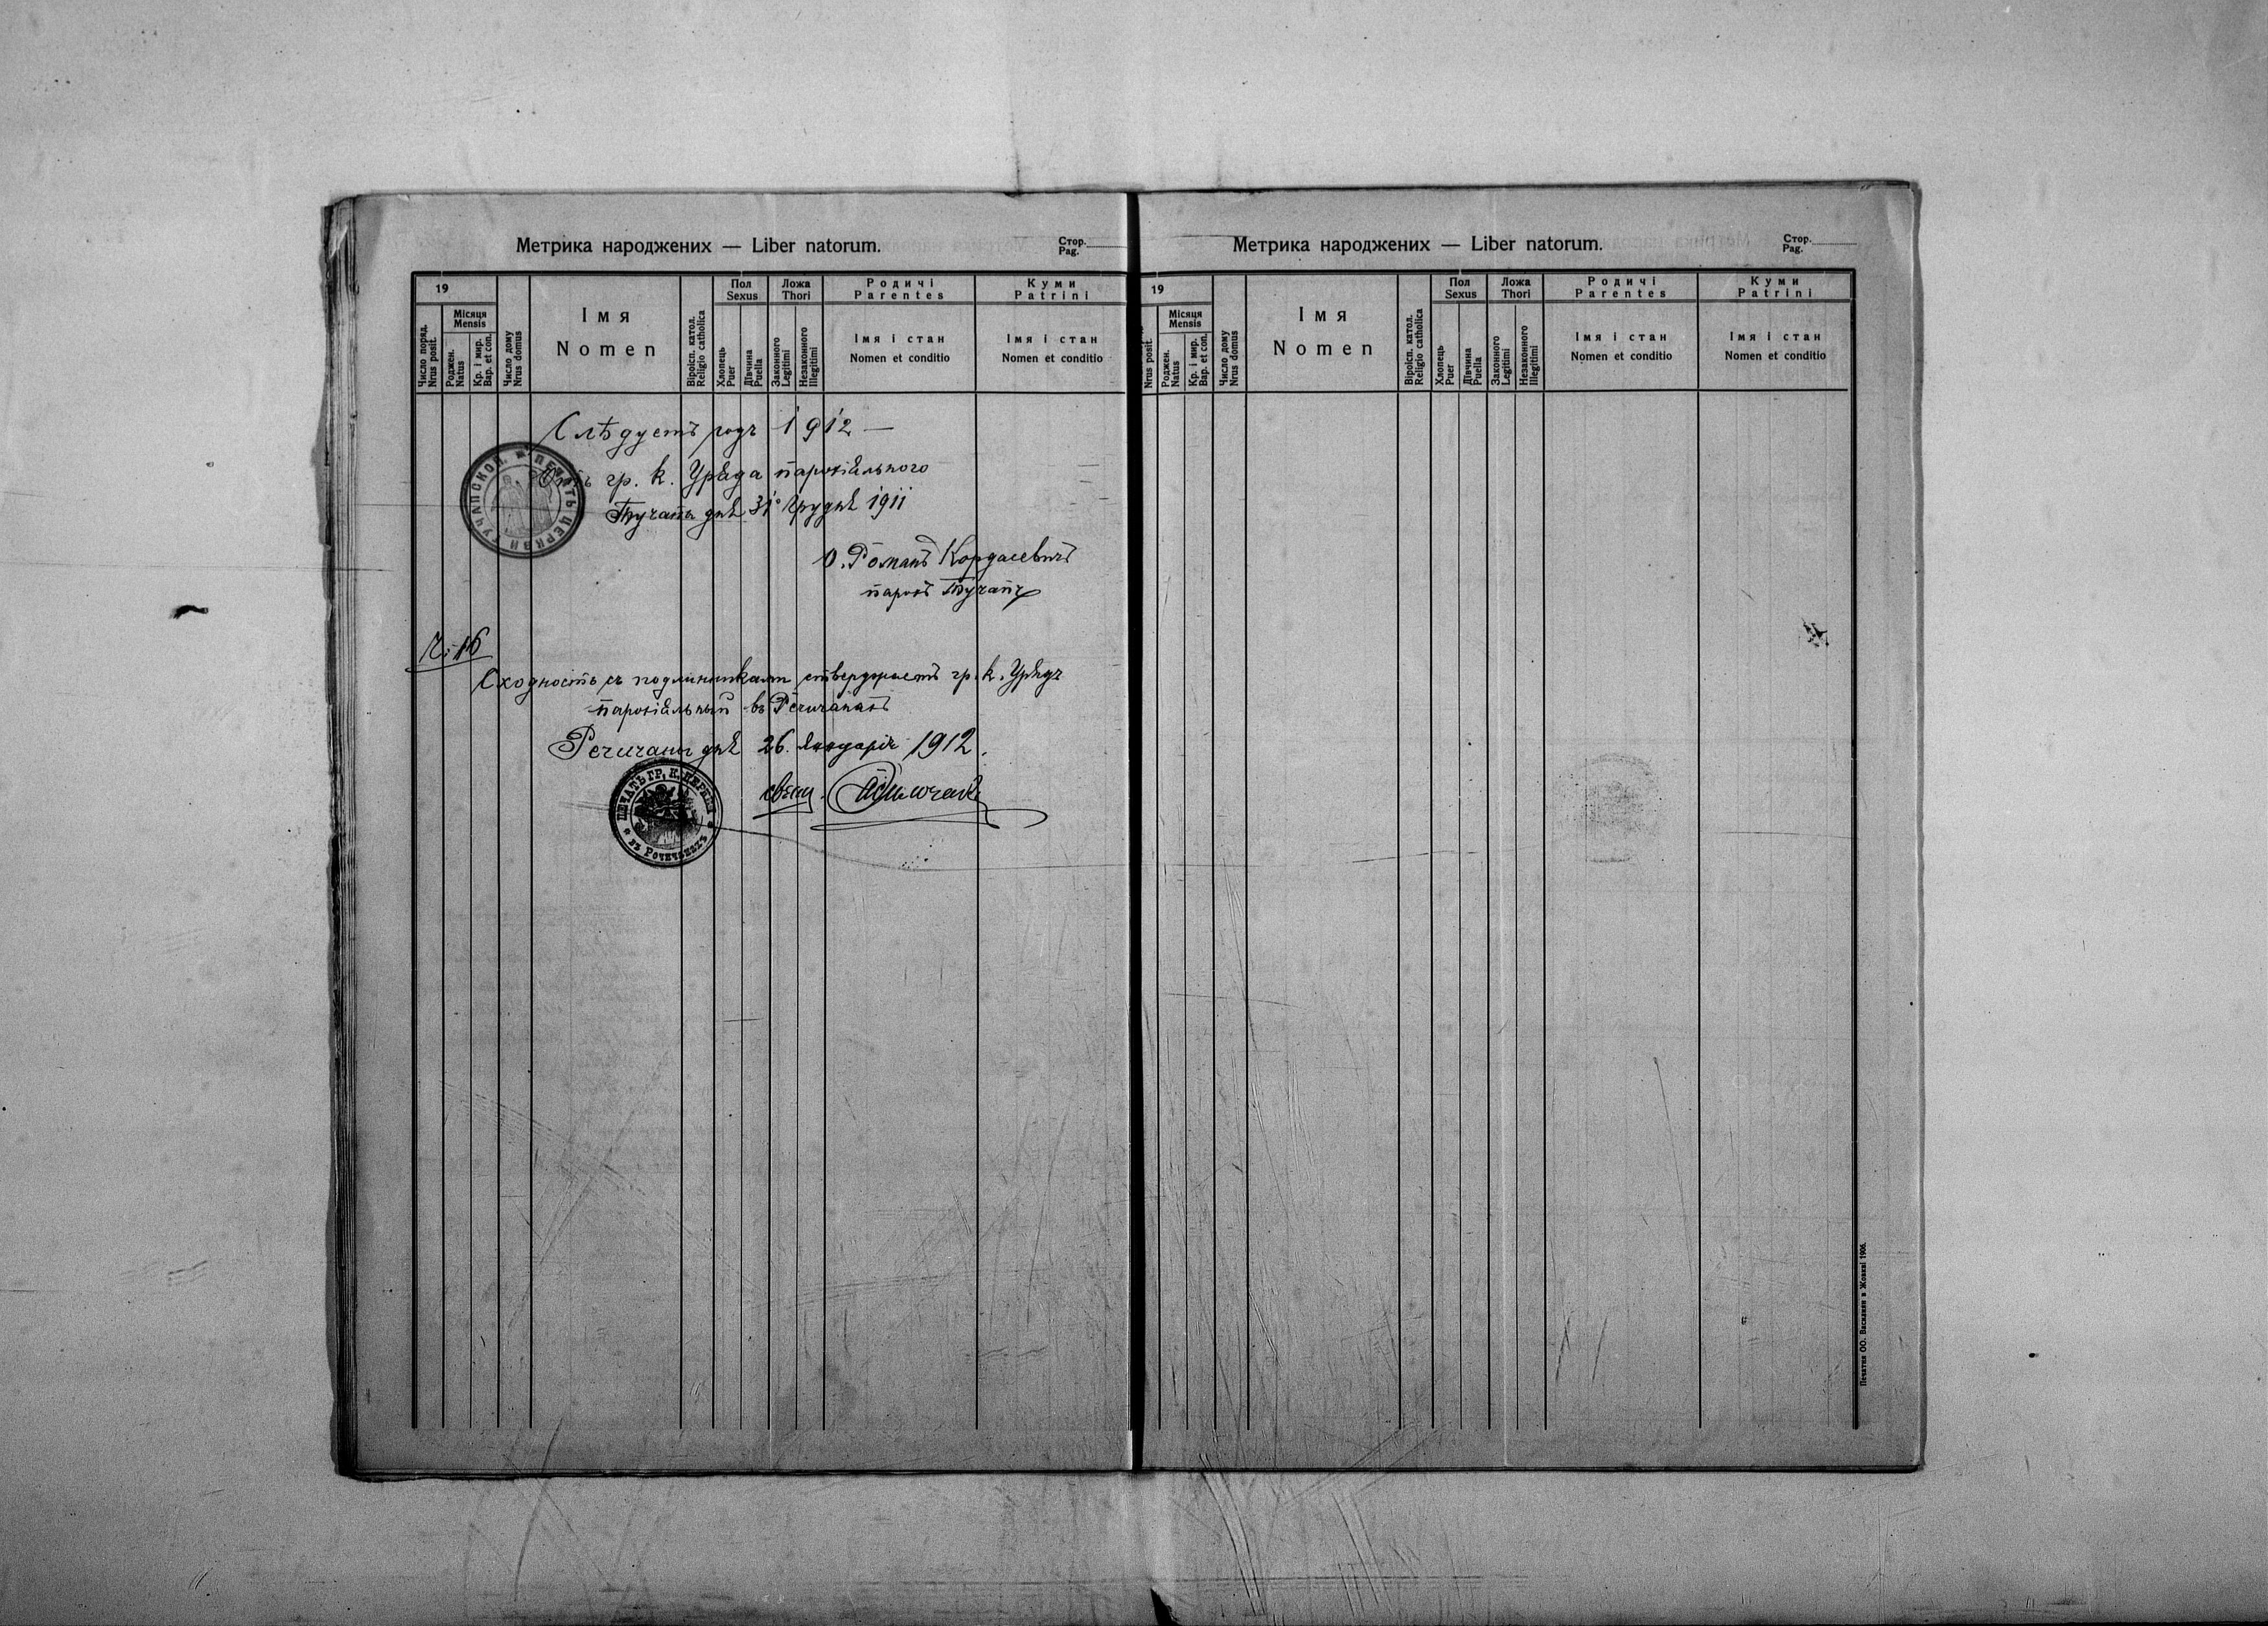 Метрика народжених — Liber natorum.
Стор.
Pag.
19
Число поряд.
Nrus posit.
Місяця
Mensis
Роджен.
Natus
Кр. і мир.
Bap. et con.
Число дому
Nrus domus
Імя
Nomen
Віроісп. катол.
Religio catholica
Пол
Sexus
Хлопець
Puer
Дівчина
Puella
Ложа
Thori
Законного
Legitimi
Незаконного
Illegitimi
Родичі
Parentes
Імя і стан
Nomen et conditio
Куми
Patrini
Імя і стан
Nomen et conditio
Слѣдуетъ годъ 1912 —
Отъ гр. к. Уряда парохіального
Тучапы днѣ 31° Грудня 1911
О. Романъ Кордасевичъ
парохъ Тучапъ
ПЕЧАТЬ ЦЕРКВИ ТУЧАПСКОЙ
Ч: 16
Сходность съ подлинникамъ стверджаетъ гр. к. Урядъ
парохіальный въ Речичанахъ
Речичаны днѣ 26. Януарія 1912.
свящ.
ПЕЧАТЬ ГР. К. ЦЕРКВИ
въ Речичанахъ
Метрика народжених — Liber natorum.
Стор.
Pag.
19
Nrus posit.
Місяця
Mensis
Роджен.
Natus
Кр. і мир.
Bap. et con.
Число дому
Nrus domus
Імя
Nomen
Віроісп. катол.
Religio catholica
Пол
Sexus
Хлопець
Puer
Дівчина
Puella
Ложа
Thori
Законного
Legitimi
Незаконного
Illegitimi
Родичі
Parentes
Імя і стан
Nomen et conditio
Куми
Patrini
Імя і стан
Nomen et conditio
Печатня ОО. Василиян в Жовкві 1906.